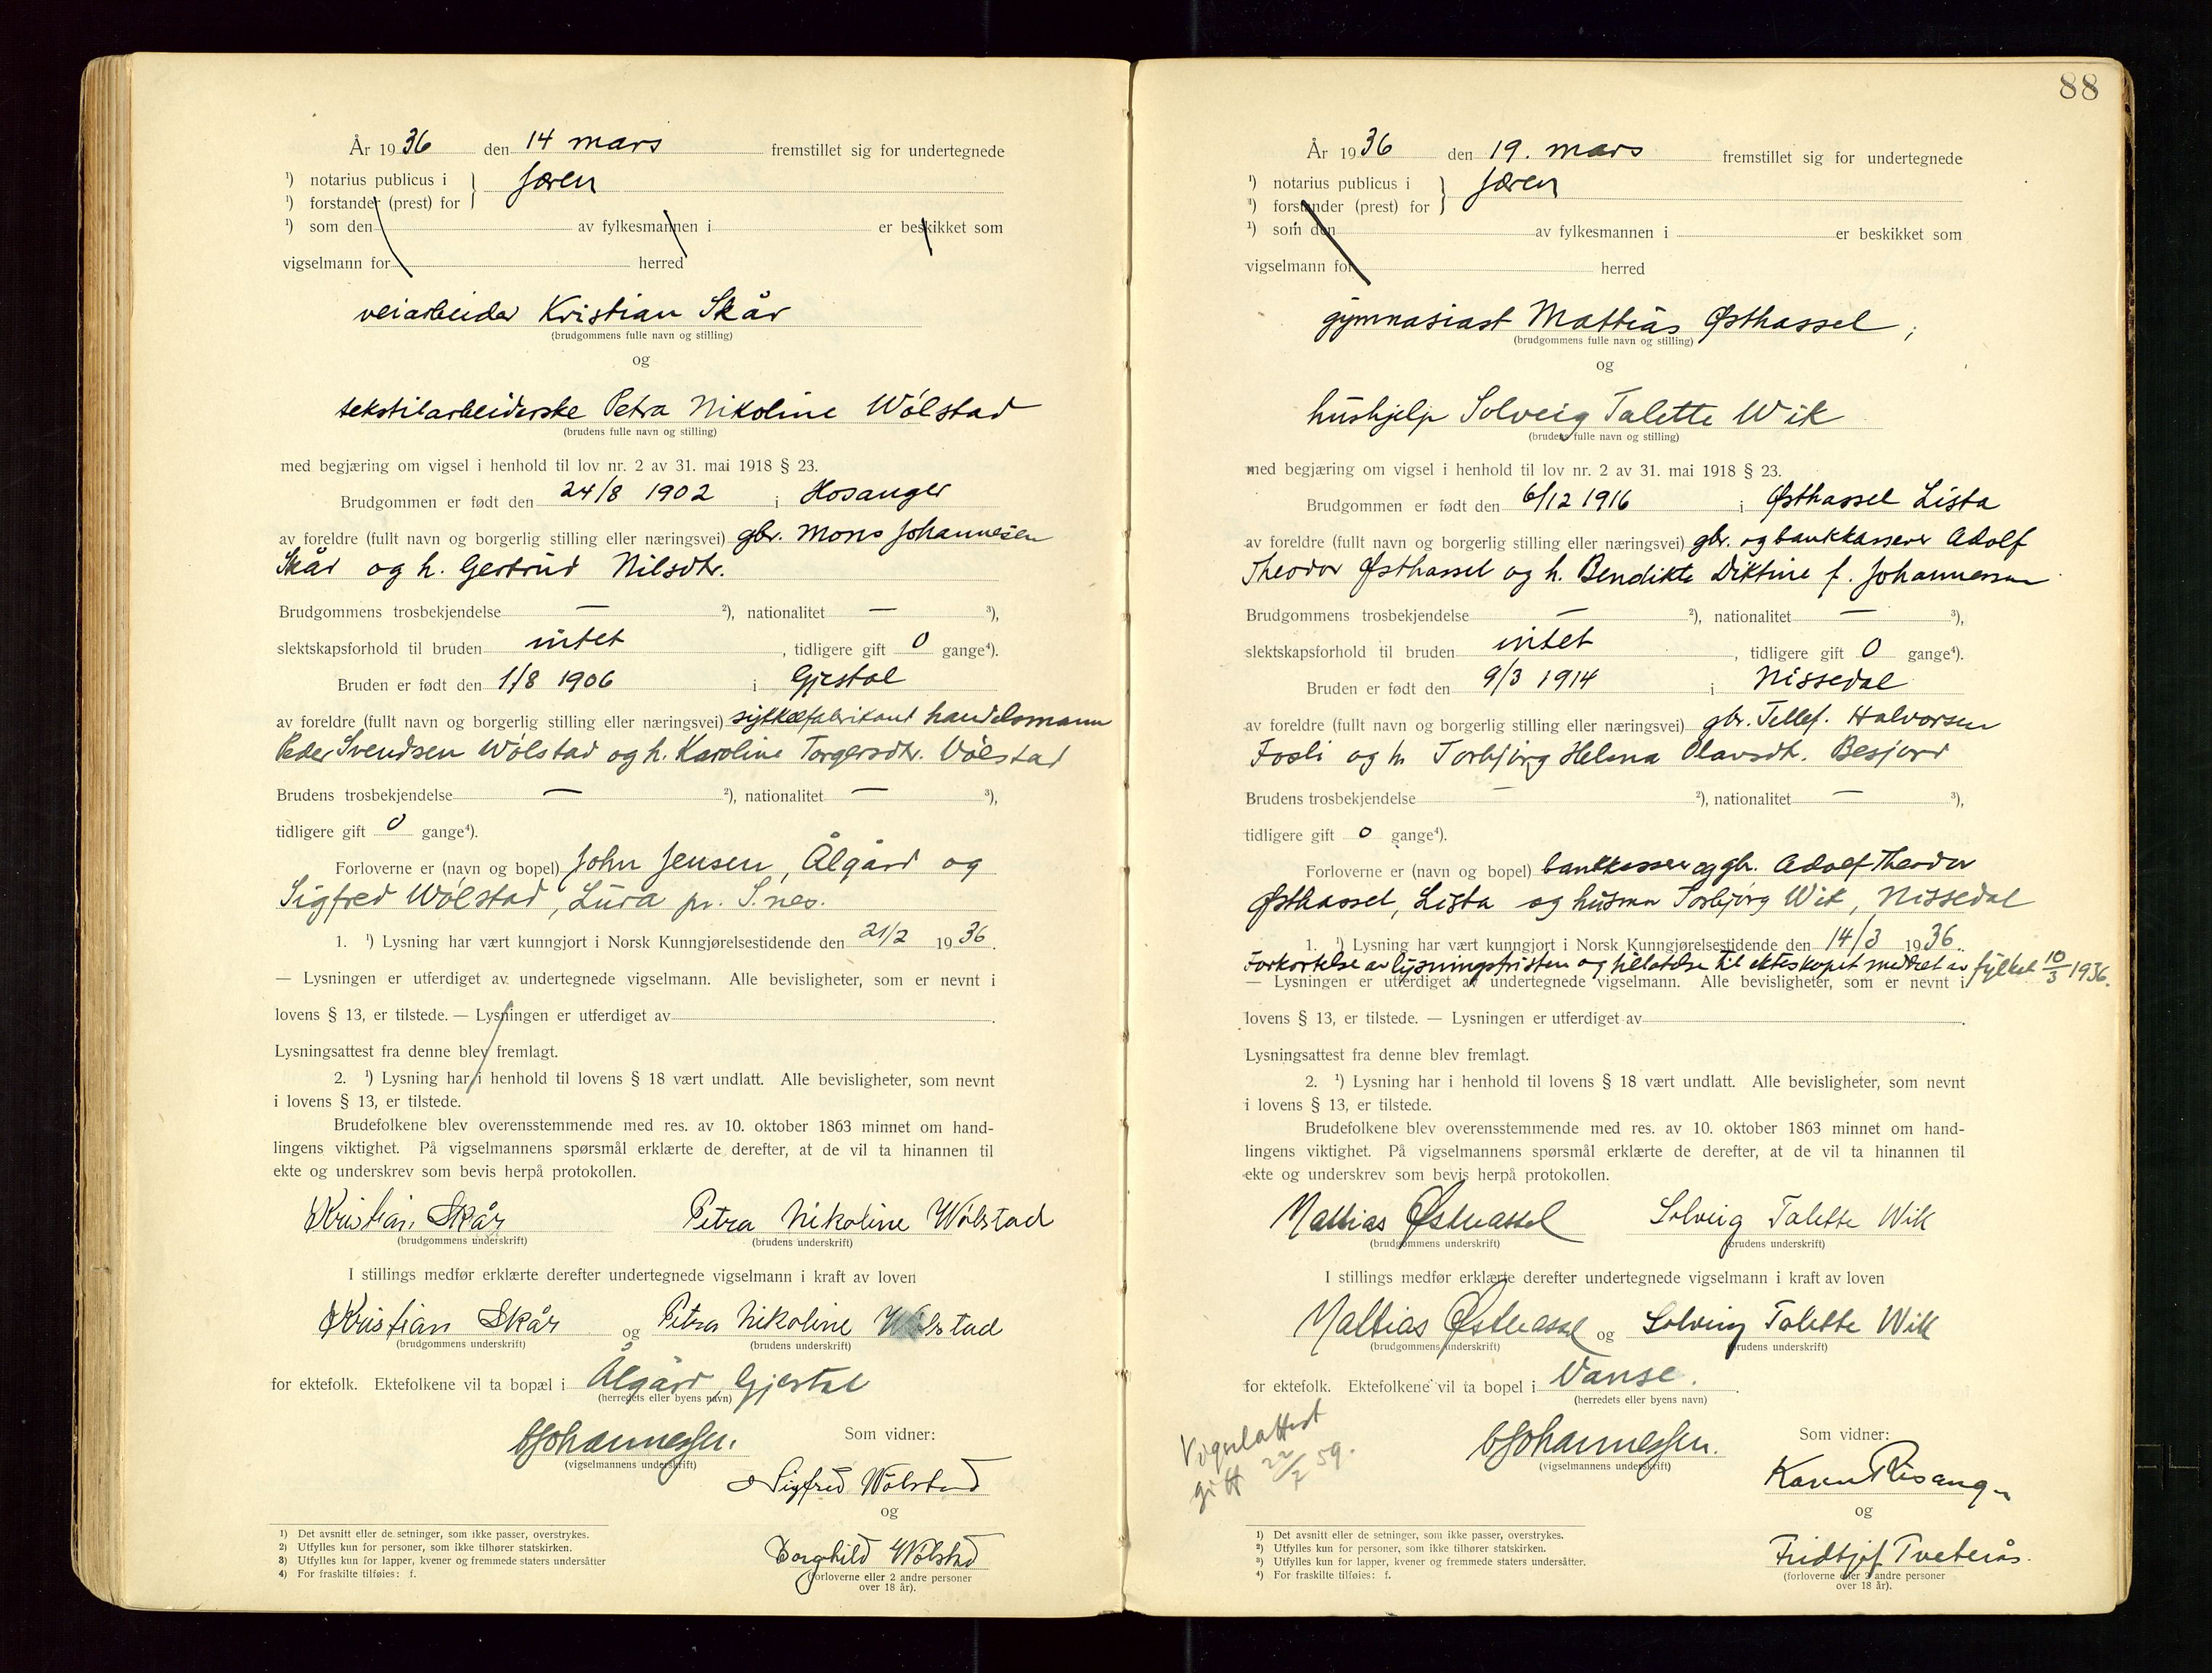 År 1936 den 14 mars fremstillet sig for undertegnede
¹) notarius publicus i } Jæren
¹) forstander (prest) for
¹) som den av fylkesmannen i er beskikket som
vigselmann for herred
veiarbeider Kristian Skår
(brudgommens fulle navn og stilling)
og
tekstilarbeiderske Petra Nikoline Wølstad
(brudens fulle navn og stilling)
med begjæring om vigsel i henhold til lov nr. 2 av 31. mai 1918 § 23.
Brudgommen er født den 24/8 1902 i Hosanger
av foreldre (fullt navn og borgerlig stilling eller næringsvei) gbr. Mons Johannesen
Skår og h. Gertrud Nilsdtr.
Brudgommens trosbekjendelse — ²), nationalitet — ³),
slektskapsforhold til bruden intet , tidligere gift 0 gange⁴).
Bruden er født den 1/8 1906 i Gjestal
av foreldre (fullt navn og borgerlig stilling eller næringsvei) handelsmann
Peder Svendsen Wølstad og h. Karoline Torgersdtr. Vølstad
Brudens trosbekjendelse — ²), nationalitet — ³),
tidligere gift 0 gange⁴).
Forloverne er (navn og bopel) John Jensen, Ålgård og
Sigfred Wølstad, Lura pr. S.nes.
1. ¹) Lysning har vært kunngjort i Norsk Kunngjørelsestidende den 21/2 1936.
— Lysningen er utferdiget av undertegnede vigselmann. Alle bevisligheter, som er nevnt i
lovens § 13, er tilstede. — Lysningen er utferdiget av .
Lysningsattest fra denne blev fremlagt.
2. ¹) Lysning har i henhold til lovens § 18 vært undlatt. Alle bevisligheter, som nevnt
i lovens § 13, er tilstede.
Brudefolkene blev overensstemmende med res. av 10. oktober 1863 minnet om hand-
lingens viktighet. På vigselmannens spørsmål erklærte de derefter, at de vil ta hinannen til
ekte og underskrev som bevis herpå protokollen.
Kristian Skår Petra Nikoline Wølstad
(brudgommens underskrift) (brudens underskrift)
I stillings medfør erklærte derefter undertegnede vigselmann i kraft av loven
Kristian Skår og Petra Nikoline Wølstad
(brudgommens underskrift) (brudens underskrift)
for ektefolk. Ektefolkene vil ta bopæl i Ålgård, Gjestal
(herredets eller byens navn)
Johannessen. Som vidner:
(vigselmannens underskrift)
Sigfred Wølstad
og
Borghild Wølstad
(forloverne eller 2 andre personer
over 18 år).
1) Det avsnitt eller de setninger, som ikke passer, overstrykes.
2) Utfylles kun for personer, som ikke tilhører statskirken.
3) Utfylles kun for lapper, kvener og fremmede staters undersåtter
4) For fraskilte tilføies: f.
88
År 1936 den 19. mars fremstillet sig for undertegnede
¹) notarius publicus i } Jæren
¹) forstander (prest) for
¹) som den av fylkesmannen i er beskikket som
vigselmann for herred
gymnasiast Mathias Østhassel,
(brudgommens fulle navn og stilling)
og
hushjelp Solveig Talette Wik
(brudens fulle navn og stilling)
med begjæring om vigsel i henhold til lov nr. 2 av 31. mai 1918 § 23.
Brudgommen er født den 6/12 1916 i Østhassel Lista
av foreldre (fullt navn og borgerlig stilling eller næringsvei) gbr. og bankkasserer Adolf
Theodor Østhassel og h. Bendikte Diktine f. Johannessen
Brudgommens trosbekjendelse — ²), nationalitet — ³),
slektskapsforhold til bruden intet , tidligere gift 0 gange⁴).
Bruden er født den 9/3 1914 i Nissedal
av foreldre (fullt navn og borgerlig stilling eller næringsvei) gbr. Tellef. Halvorsen
Fosli og h. Torbjørg Helena Olavsdtr. Besjord
Brudens trosbekjendelse — ²), nationalitet — ³),
tidligere gift 0 gange⁴).
Forloverne er (navn og bopel) bankkasserer og gbr. Adolf Theodor
Østhassel, Lista og husmor Torbjørg Wik, Nissedal
1. ¹) Lysning har vært kunngjort i Norsk Kunngjørelsestidende den 14/3 1936.
Forkortelse av lysningsfristen og tillatelse til ekteskapet meddelt av fylket 10/3 1936.
— Lysningen er utferdiget av undertegnede vigselmann. Alle bevisligheter, som er nevnt i
lovens § 13, er tilstede. — Lysningen er utferdiget av .
Lysningsattest fra denne blev fremlagt.
2. ¹) Lysning har i henhold til lovens § 18 vært undlatt. Alle bevisligheter, som nevnt
i lovens § 13, er tilstede.
Brudefolkene blev overensstemmende med res. av 10. oktober 1863 minnet om hand-
lingens viktighet. På vigselmannens spørsmål erklærte de derefter, at de vil ta hinannen til
ekte og underskrev som bevis herpå protokollen.
Mathias Østhassel Solveig Talette Wik
(brudgommens underskrift) (brudens underskrift)
I stillings medfør erklærte derefter undertegnede vigselmann i kraft av loven
Mathias Østhassel og Solveig Talette Wik
(brudgommens underskrift) (brudens underskrift)
for ektefolk. Ektefolkene vil ta bopel i Vanse.
(herredets eller byens navn)
Vigselattest
gitt 22/7 59.
Johannessen. Som vidner:
(vigselmannens underskrift)
Karen Risanger
og
Fridtjof Tveterås.
(forloverne eller 2 andre personer
over 18 år).
¹) Det avsnitt eller de setninger, som ikke passer, overstrykes.
²) Utfylles kun for personer, som ikke tilhører statskirken.
³) Utfylles kun for lapper, kvener og fremmede staters undersåtter.
⁴) For fraskilte tilføies: f.